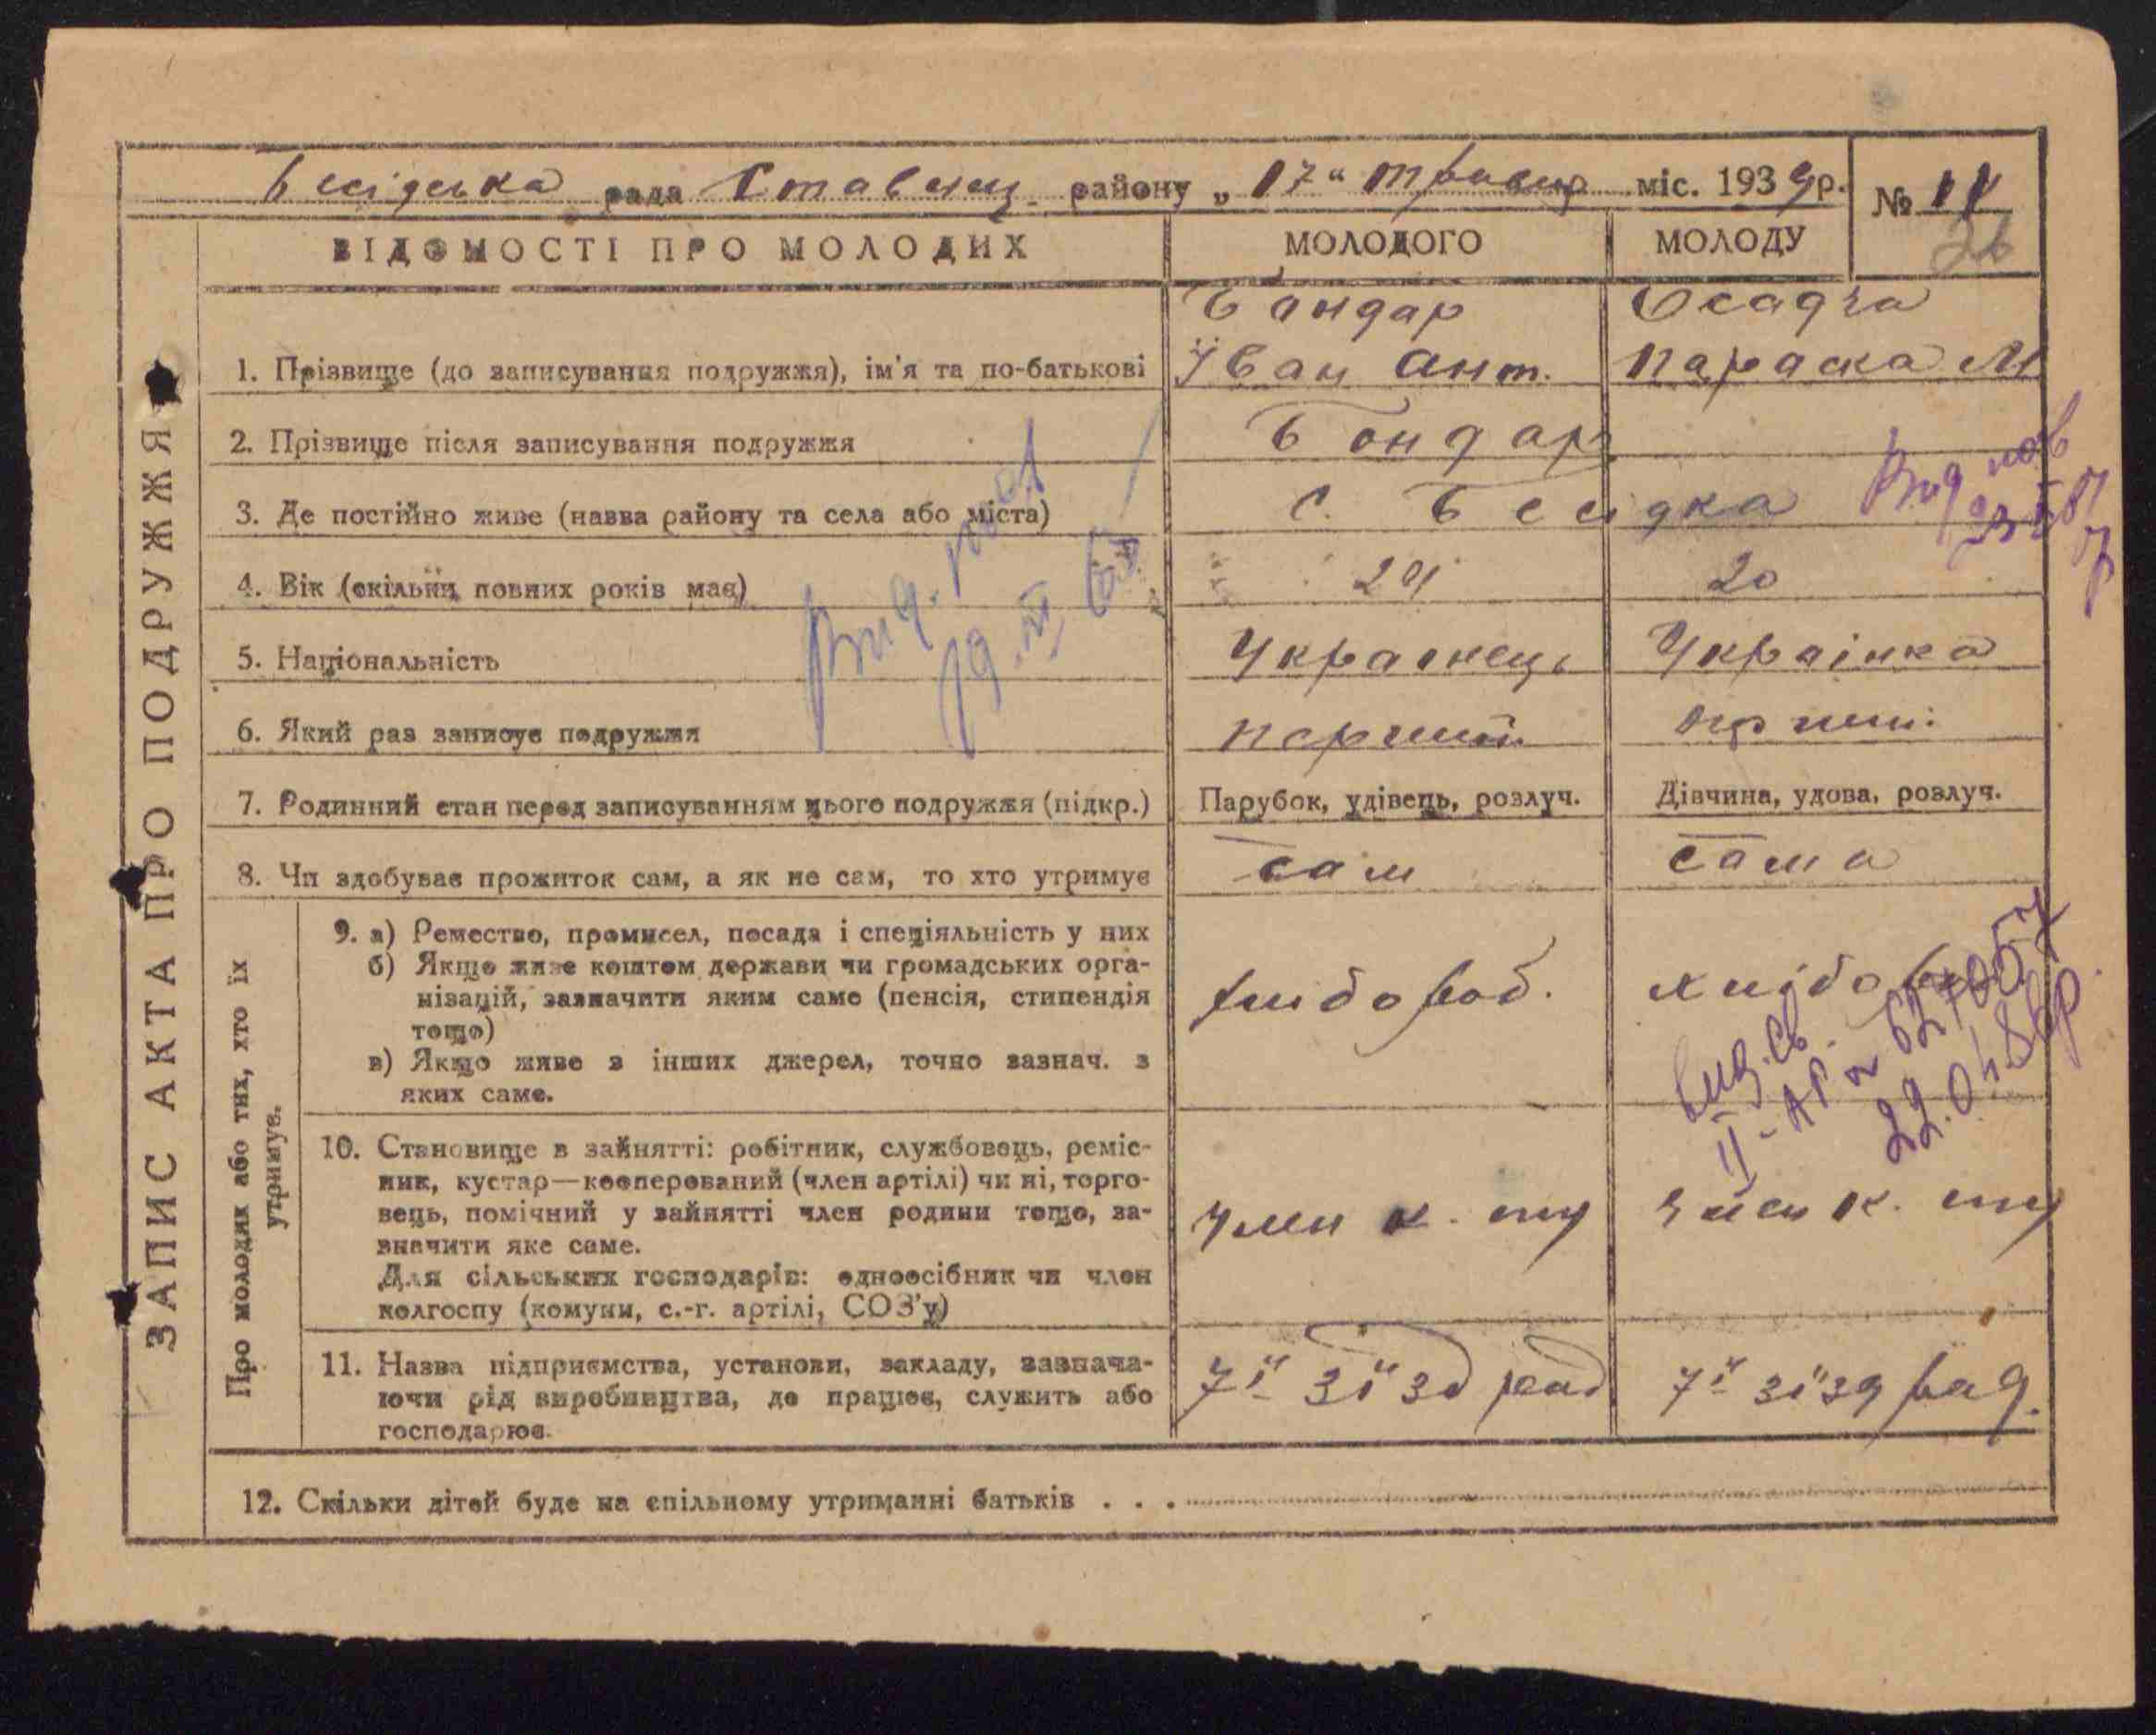 Бесідська рада Ставищ. району „17“ травня міс. 1939 р. № 11
26
ВІДОМОСТІ ПРО МОЛОДИХ МОЛОДОГО МОЛОДУ
ЗАПИС АКТА ПРО ПОДРУЖЖЯ
Бондар Осадча
1. Прізвище (до записування подружжя), ім'я та по-батькові Іван Ант. Параска М
2. Прізвище після записування подружжя Бондар
3. Де постійно живе (назва району та села або міста) С. Бесідка
Вид пов
4. Вік (скільки повних років має) 20
5. Національність Українець Українка
6. Який раз записує подружжя перший перший
7. Родинний стан перед записуванням цього подружжя (підкр.) Парубок, удівець, розлуч. Дівчина, удова, розлуч.
8. Чи здобуває прожиток сам, а як не сам, то хто утримує сам сама
Про молодих або тих, хто їх
утримує.
9. а) Ремество, промисел, посада і спеціяльність у них
б) Якщо живе коштом держави чи громадських орга-
нізацій, зазначити яким саме (пенсія, стипендія
тощо)
в) Якщо живе з інших джерел, точно зазнач. з
яких саме.
хлібороб. хлібороб
Вид. св.
II-АР
10. Становище в зайнятті: робітник, службовець, реміс-
ник, кустар—кооперований (член артілі) чи ні, торго-
вець, помічний у зайнятті член родини тощо, за-
значити яке саме.
Для сільських господарів: одноосібник чи член
колгоспу (комуни, с.-г. артілі, СОЗ'у)
член к. гпу член к. гпу
11. Назва підприємства, установи, закладу, зазнача-
ючи рід виробництва, де працює, служить або
господарює.
7й зїзд рад 7й зїзд рад.
12. Скільки дітей буде на спільному утриманні батьків . . .